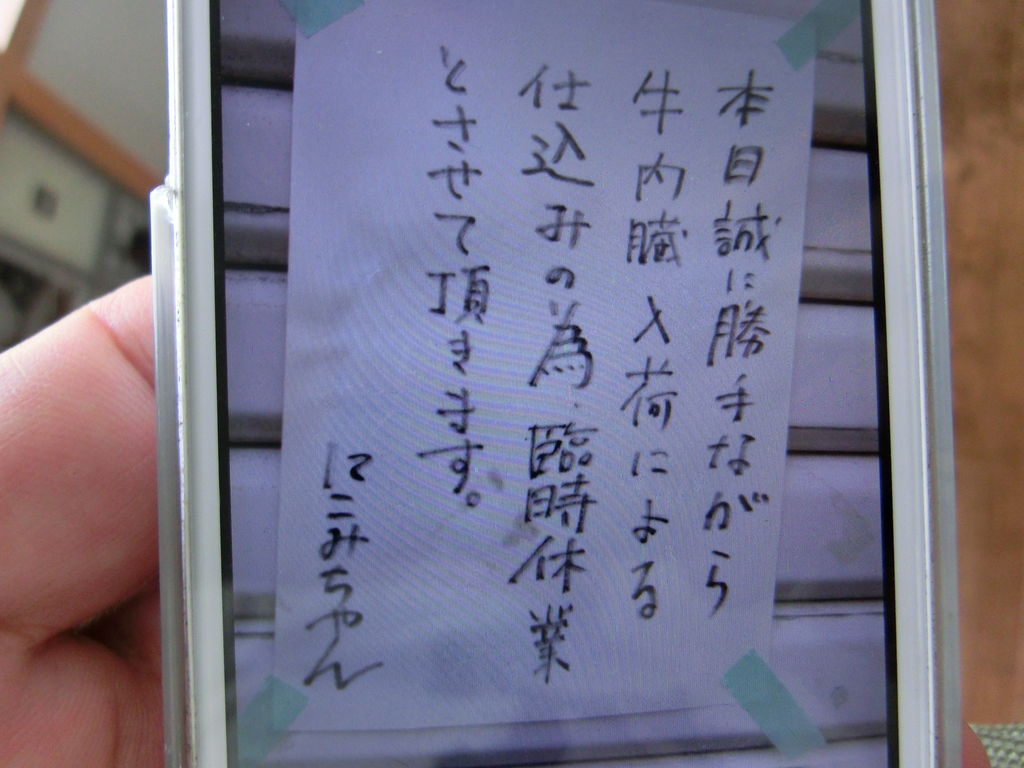 本日誠に勝手ながら
牛内臓入荷による
仕込みの為、臨時休業
とさせて頂きます。
にこみちゃん